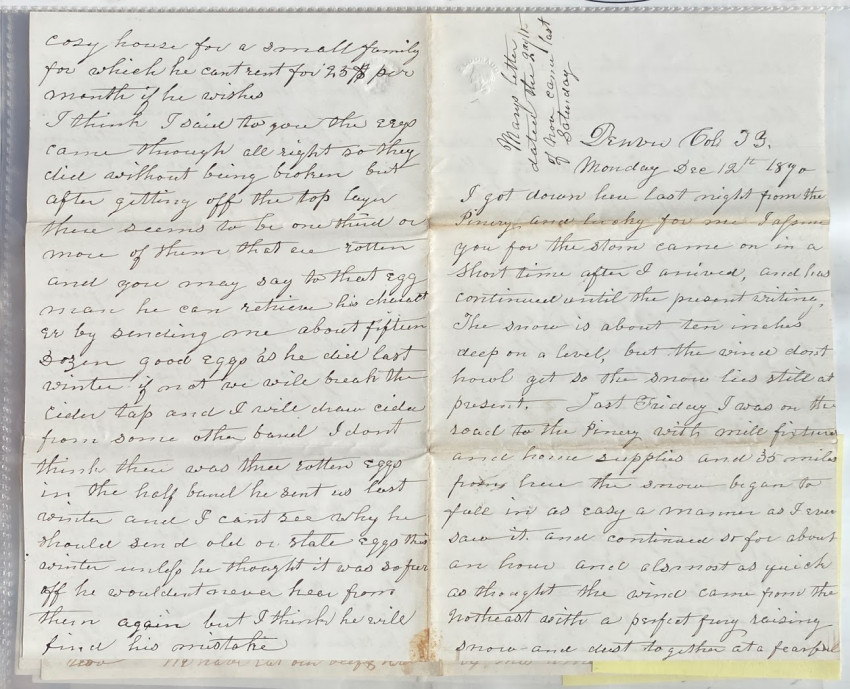 cosy house for a small family
for which he cant rent for 25$ per
month if he wishes
I think I said to you the eggs
came through all right so they
did without being broken but
after getting off the top layer
there seems to be one third or
more of them that are rotten
and you may say to that egg
man he can retrieve his charact
er by sending me about fifteen
Dozen good eggs as he did last
winter if not we will break the
cider tap and I will draw cider
from some other barrel I dont
think there was three rotten eggs
in the half barrel he sent us last
winter and I cant see why he
should send old or stale eggs this
winter unless he thought it was so fur
off he wouldent never hear from
them again but I think he will
find his mistake
Marys letter
dated the
of nov came last
Saturday
Denver Col T3.
Monday Dec 12th 1870
I got down here last night from the
Pinery and lucky for me I assure
you for the storm came on in a
short time after I arrived, and has
continued until the present writing.
The snow is about ten inches
deep on a level, but the wind dont
howl yet so the snow lies still at
present. Last Friday I was on the
road to the Pinery with mill fixtures
and home supplies and 35 miles
from here the snow began to
fall in as easy a manner as I ever
saw it. and continued so for about
an hour and alsmost as quick
as thought the wind came from the
Notheast with a perfect fury raising
snow and dust together at a fearful